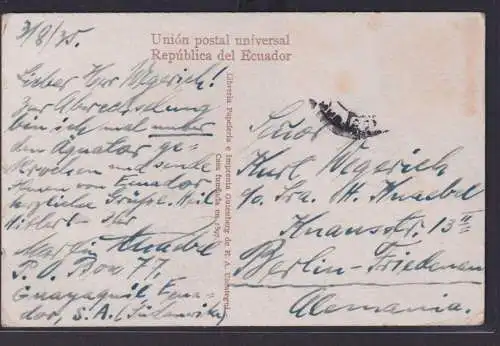 Unión postal universal
República del Ecuador
31/8/35.
Lieber Herr Wegerich!
Zur Abwechselung
bin ich mal unter
dem Äquator ge-
krochen und sende
Ihnen von Ecuador
herzliche Grüsse. Heil
Hitler! Ihr
Knaebel
P. O. Box 77,
Guayaquil, Ecua-
dor, S. A. (Südamerika)
Librería Papelería e Imprenta Gutenberg de E. A. Uzcátegui
Casa fundada en 1897
Señor
Kurt Wegerich
c/o. Sra. M. Knaebel
Knausstr. 13 II
Berlin-Friedenau
Alemania.